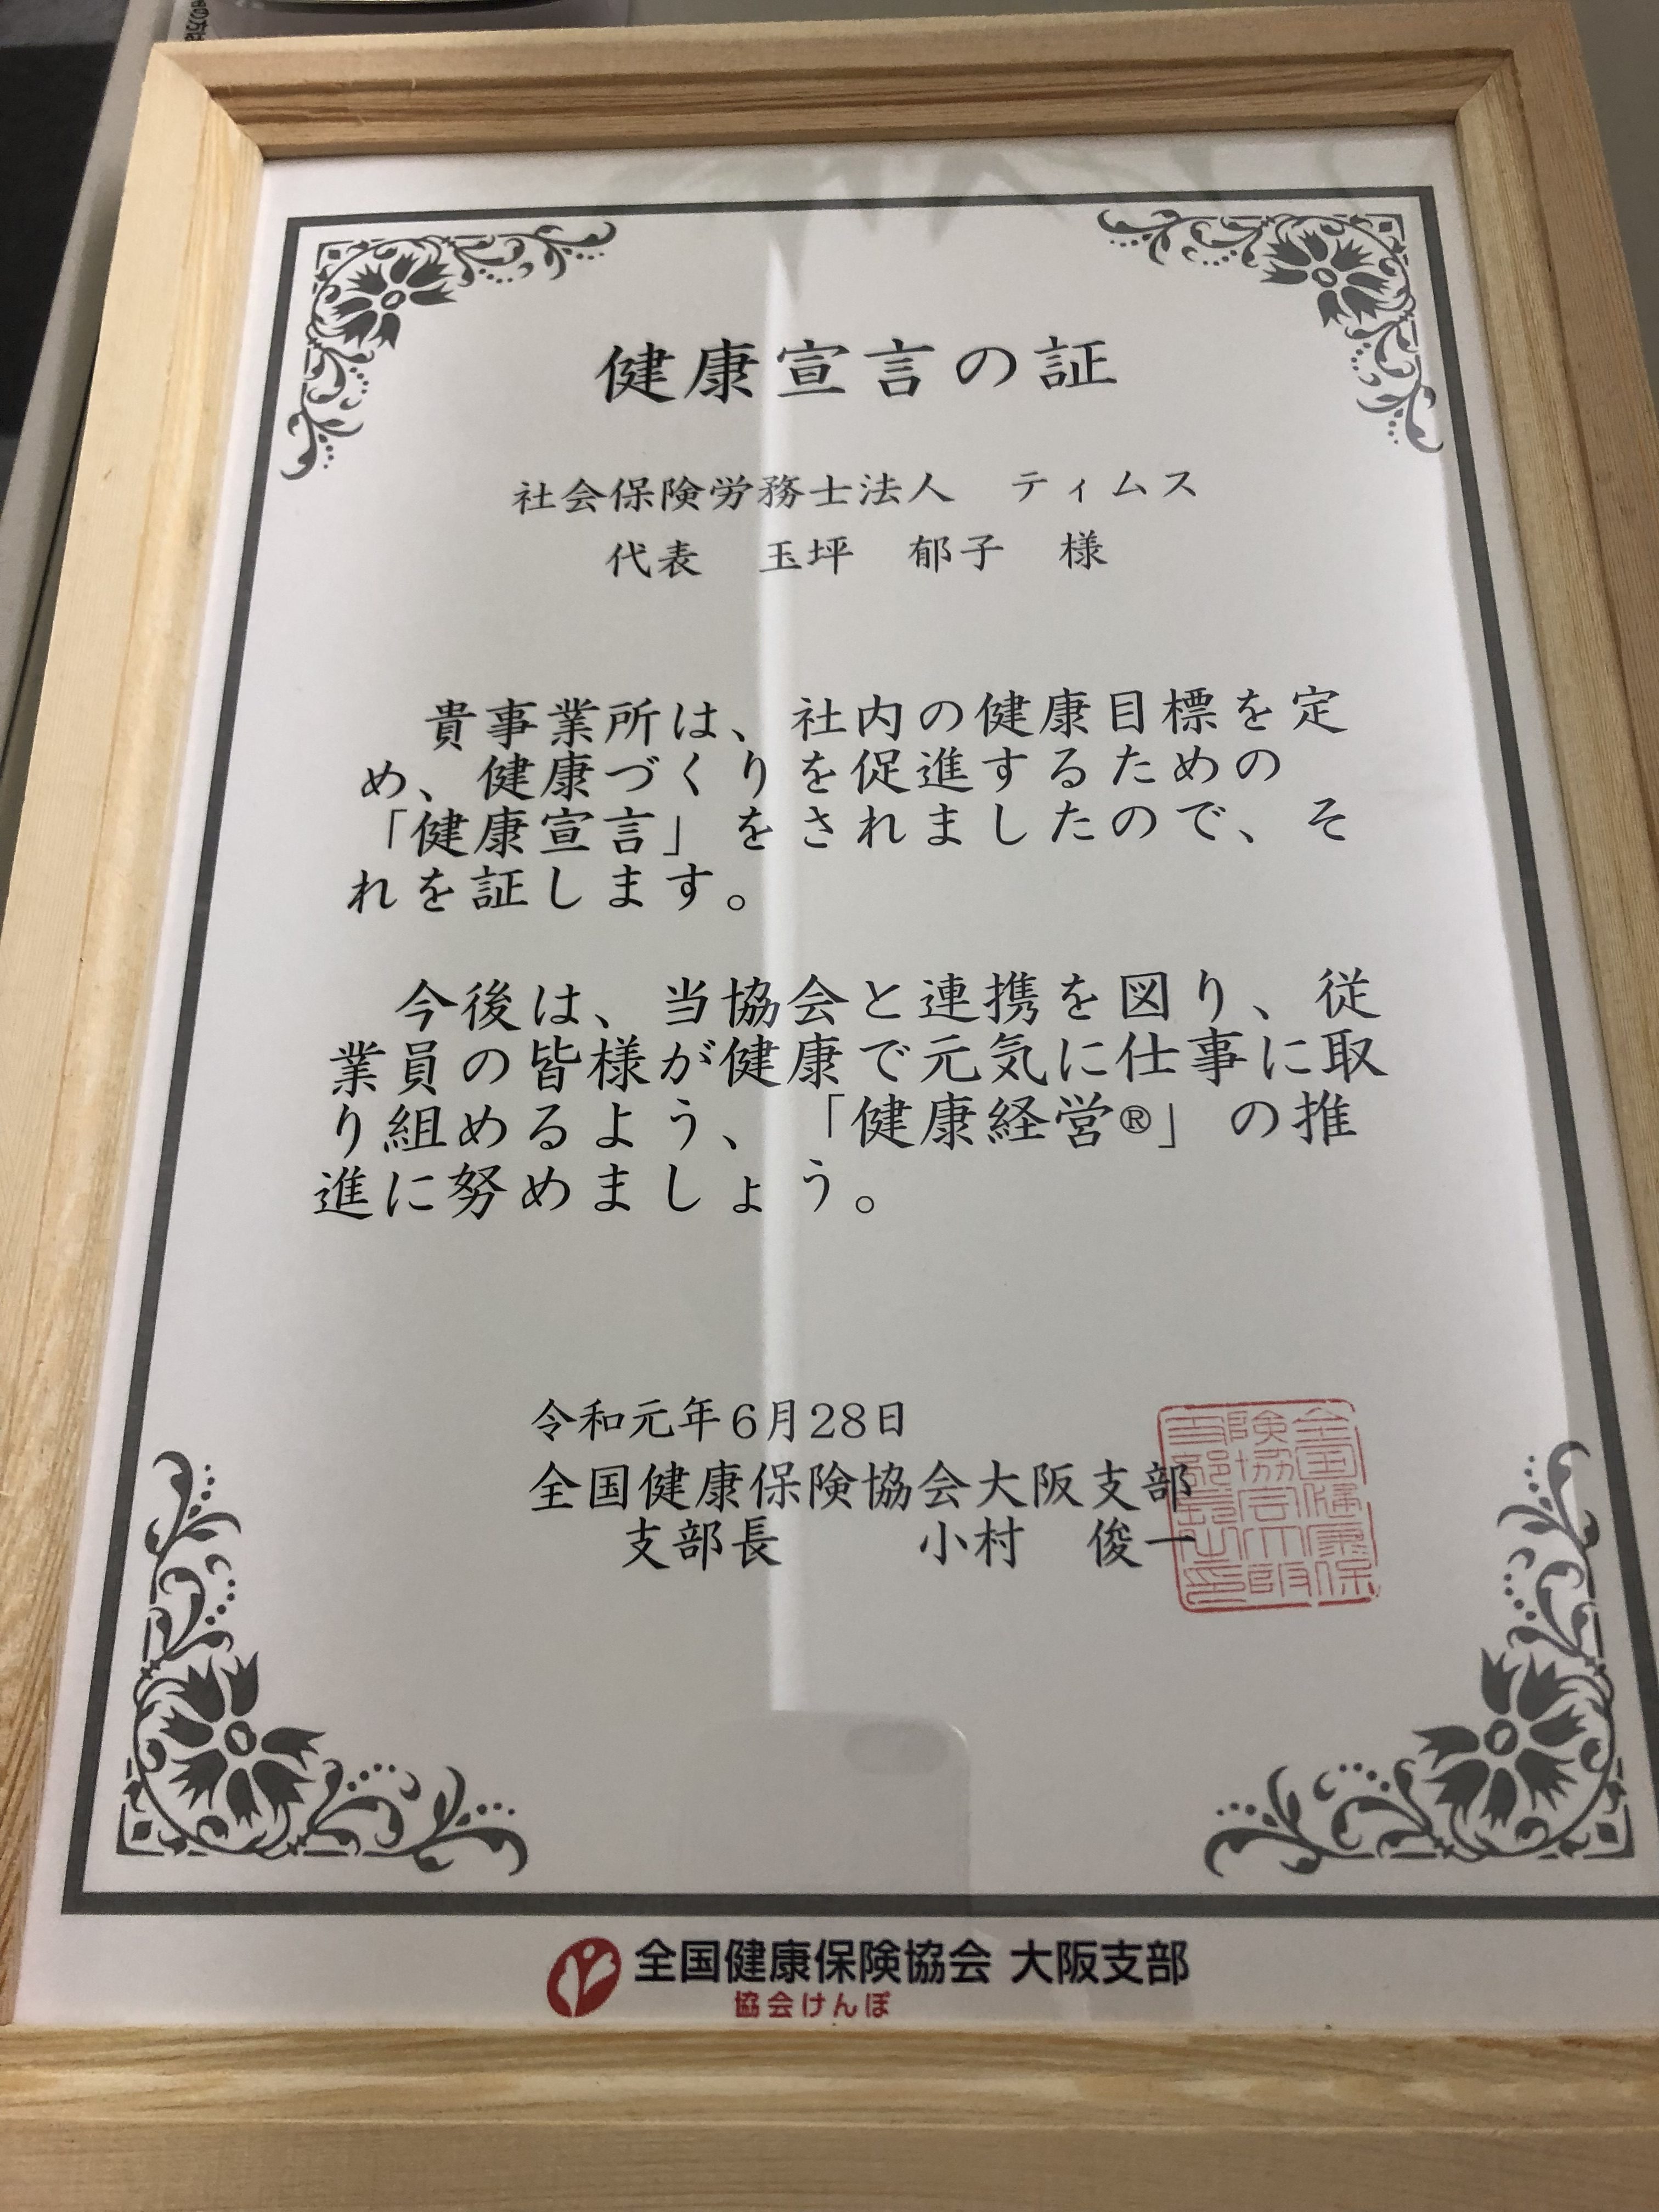 健康宣言の証
社会保険労務士法人　ティムス
代表　玉坪　郁子　様
貴事業所は、社内の健康目標を定
め、健康づくりを促進するための
「健康宣言」をされましたので、そ
れを証します。
今後は、当協会と連携を図り、従
業員の皆様が健康で元気に仕事に取
り組めるよう、「健康経営®」の推
進に努めましょう。
令和元年6月28日
全国健康保険協会大阪支部
支部長　　小村　俊一
全国健康保険協会大阪支部長之印
全国健康保険協会 大阪支部
協会けんぽ